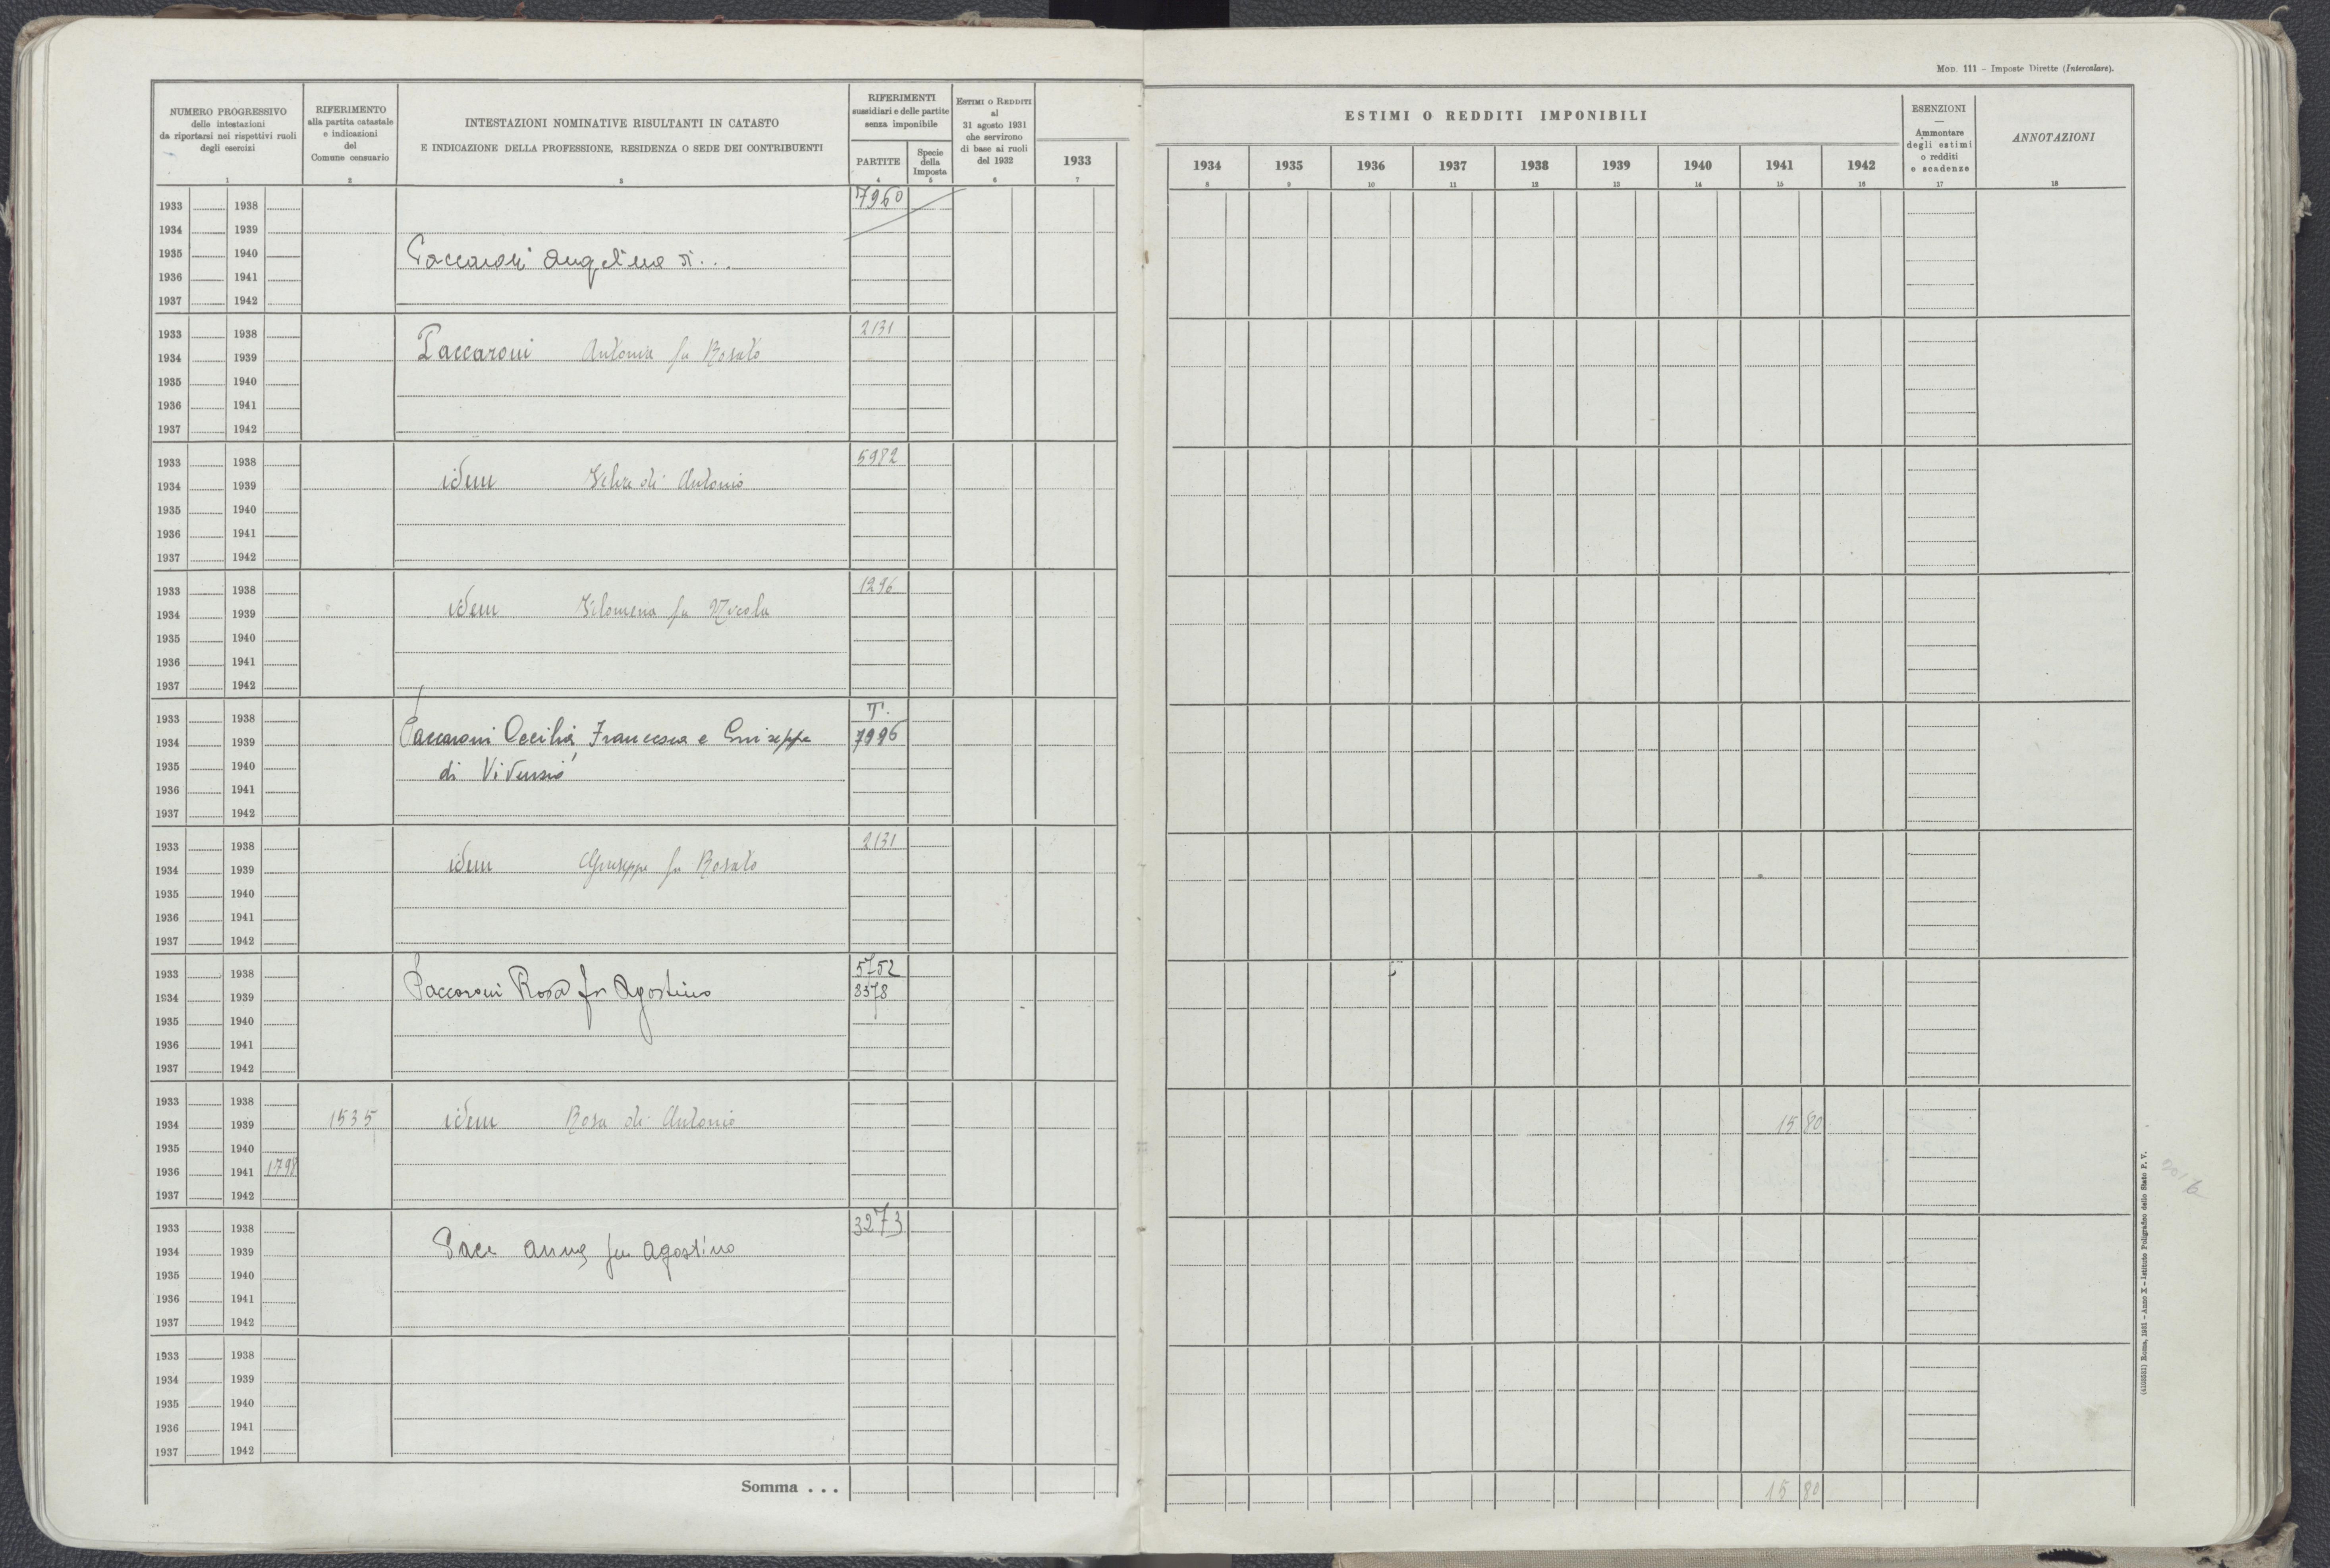 Mod. 111 - Imposte Dirette (Intercalare).
NUMERO PROGRESSIVO
delle intestazioni
da riportarsi nei rispettivi ruoli
degli esercizi
1
RIFERIMENTO
alla partita catastale
e indicazioni
del
Comune censuario
2
INTESTAZIONI NOMINATIVE RISULTANTI IN CATASTO
E INDICAZIONE DELLA PROFESSIONE, RESIDENZA O SEDE DEI CONTRIBUENTI
3
RIFERIMENTI
sussidiari e delle partite
senza imponibile
PARTITE
4
Specie
della
Imposta
5
ESTIMI O REDDITI
al
31 agosto 1931
che servirono
di base ai ruoli
del 1932
6
1933
7
ESTIMI O REDDITI IMPONIBILI
1934 1935 1936 1937 1938 1939 1940 1941 1942
8 9 10 11 12 13 14 15 16
ESENZIONI
—
Ammontare
degli estimi
o redditi
e scadenze
17
ANNOTAZIONI
18
1933 1938 7960
1934 1939
1935 1940 Paccaroni Angelina di...
1936 1941
1937 1942
1933 1938 2131
1934 1939 Paccaroni Antonia fu Rosato
1935 1940
1936 1941
1937 1942
1933 1938 5982
1934 1939 idem di Antonio
1935 1940
1936 1941
1937 1942
1933 1938 1296
1934 1939 idem Filomena fu Nicola
1935 1940
1936 1941
1937 1942
1933 1938 T.
1934 1939 Paccaroni Cecilia, Francesca e Giuseppe 7996
1935 1940 di
1936 1941
1937 1942
1933 1938 2131
1934 1939 idem Giuseppe fu Rosato
1935 1940
1936 1941
1937 1942
1933 1938 5752
1934 1939 Paccaroni Rosa fu Agostino 8378
1935 1940
1936 1941
1937 1942
1933 1938
1934 1939 1535 idem Rosa di Antonio 15 80
1935 1940
1936 1941 1798
1937 1942
1933 1938 3273
1934 1939 Pace Anna fu Agostino
1935 1940
1936 1941
1937 1942
1933 1938
1934 1939
1935 1940
1936 1941
1937 1942
Somma . . . 15 80
Roma, 1931 - Anno X - Istituto Poligrafico dello Stato P. V.